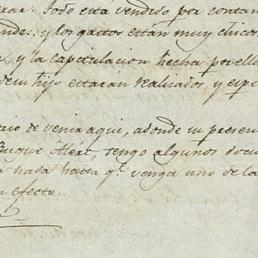 todo está vendido por contan
ndes, y los gastos están muy chicos
y la capitulacion hecha por ello
hijo estarán realizados, y espe
de venir aqui, adonde su presen
Buque tengo algunos docu
nada hasta q.e venga uno de la
efecto.